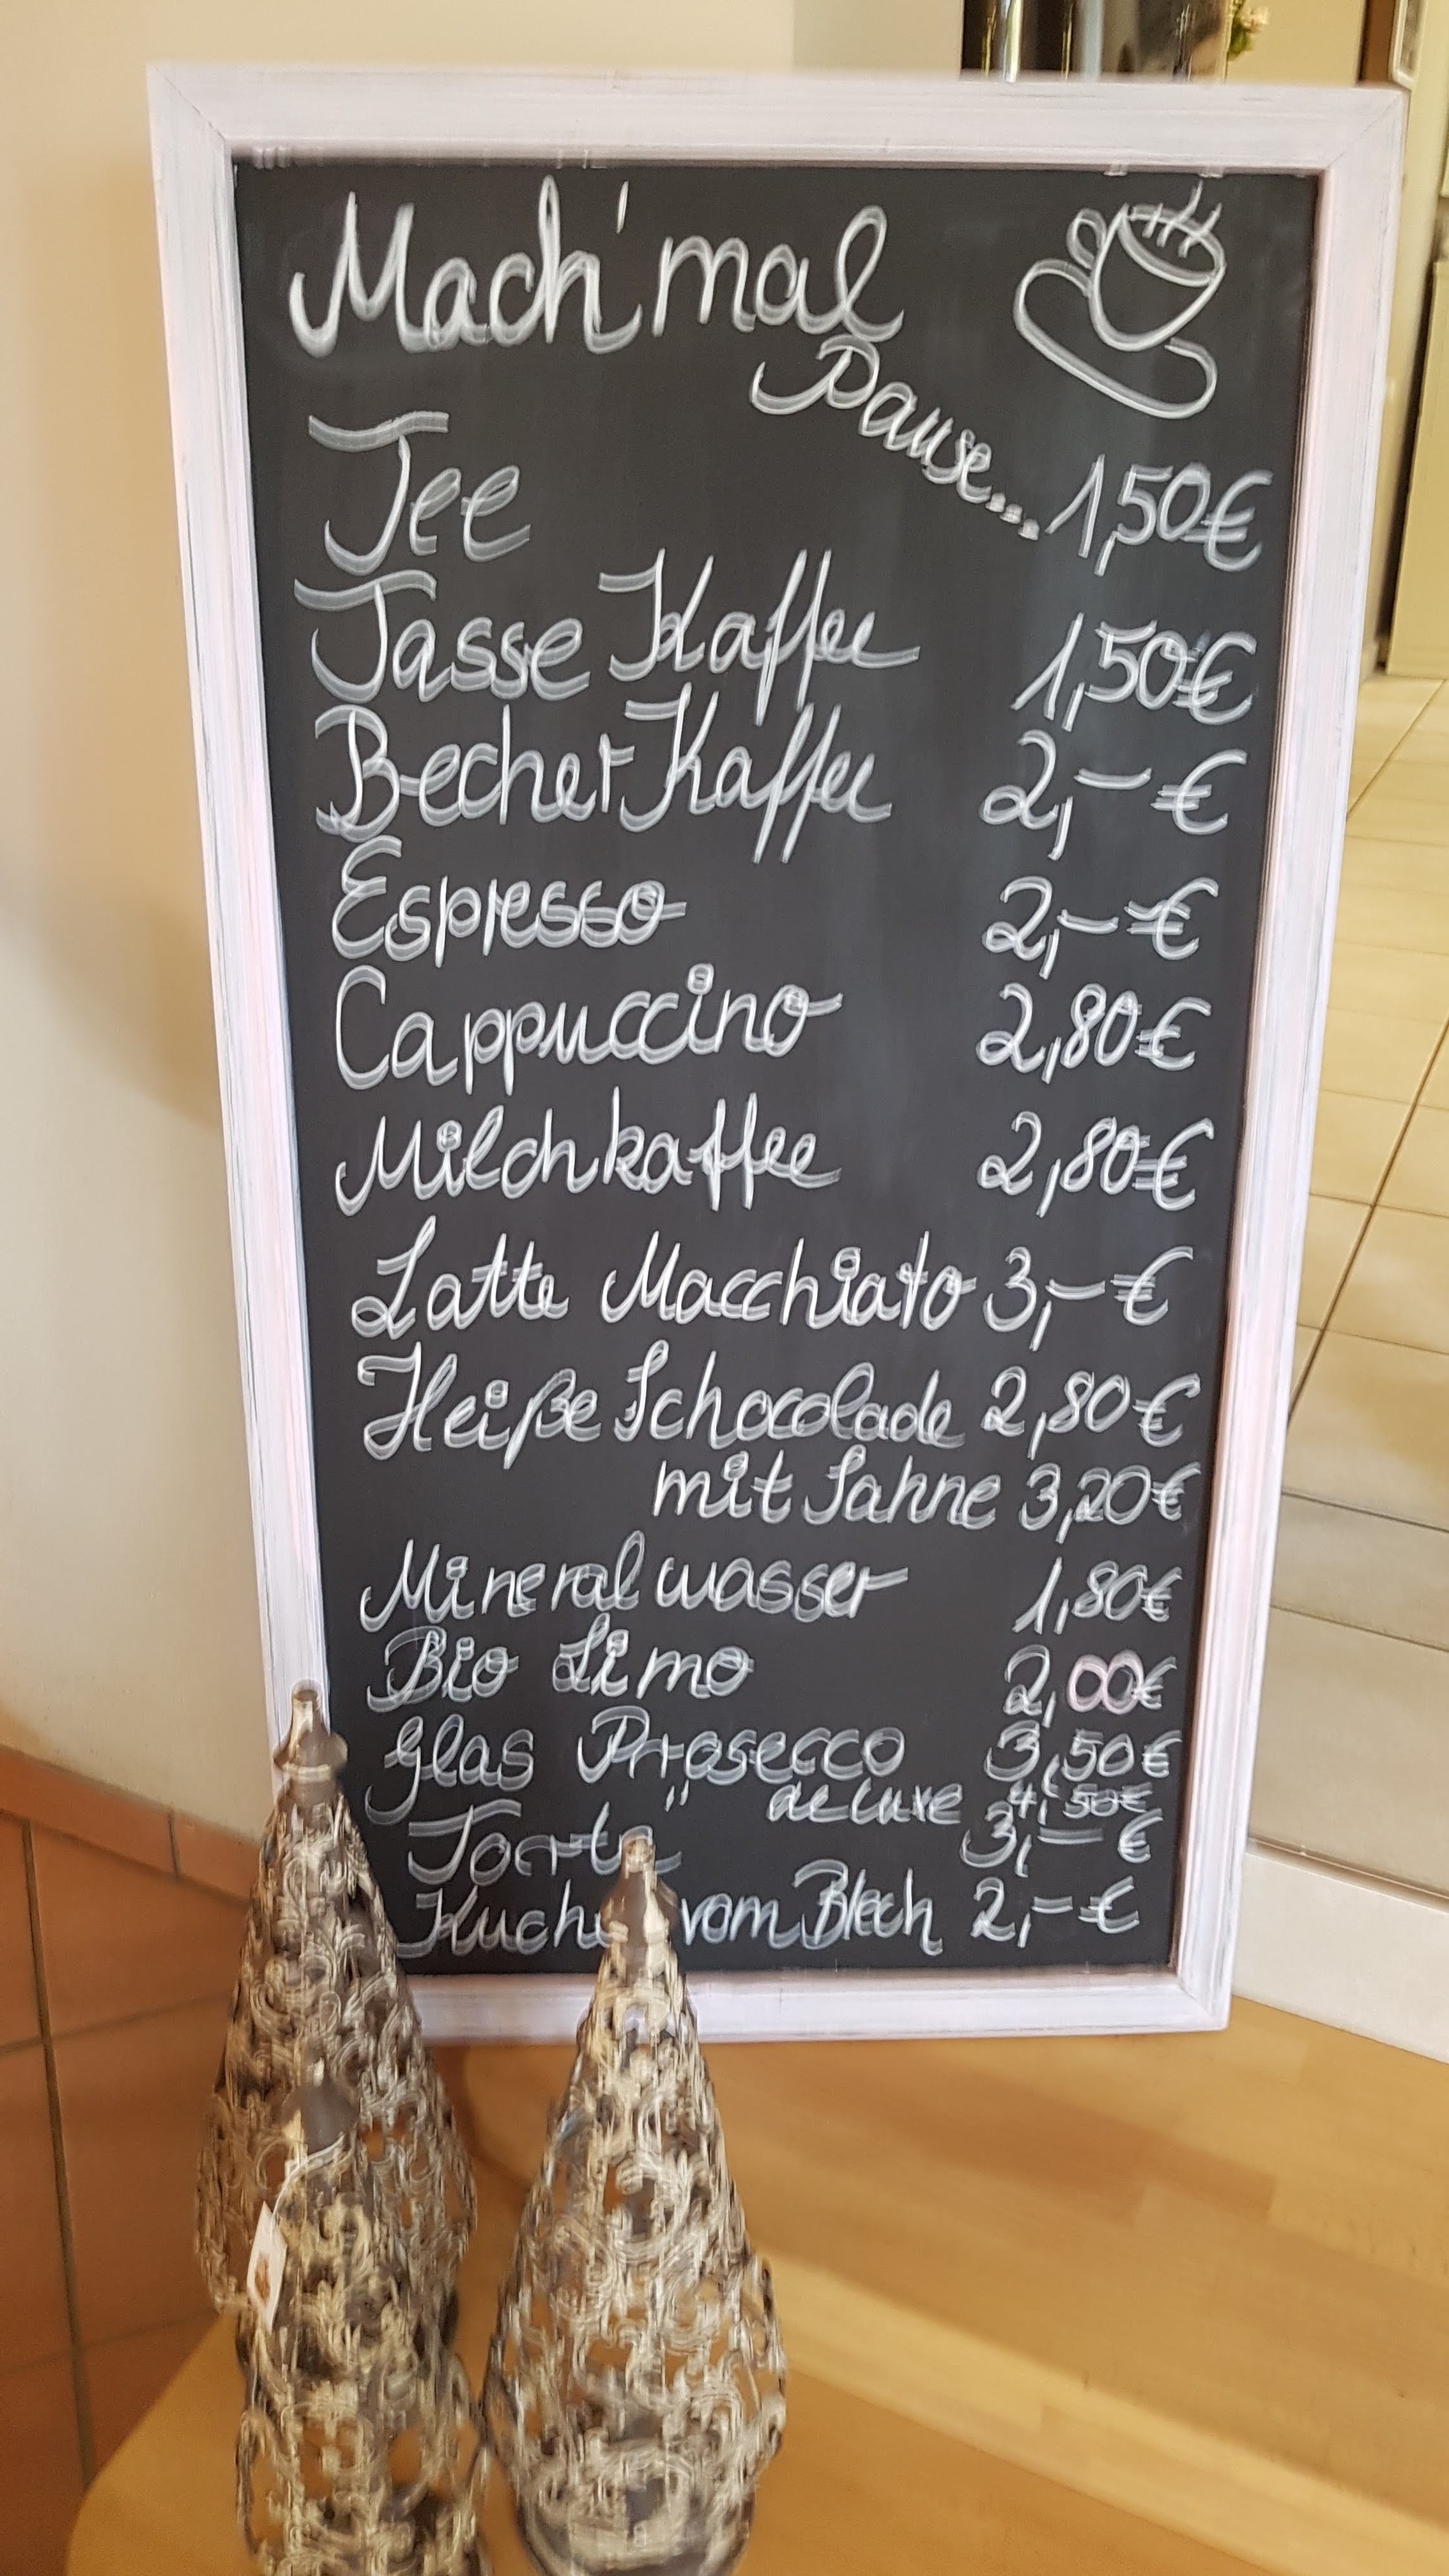 Mach' mal
Pause...
Tee 1,50€
Tasse Kaffee 1,50€
Becher Kaffee 2,-€
Espresso 2,-€
Cappuccino 2,80€
Milchkaffee 2,80€
Latte Macchiato 3,-€
Heiße Schocolade 2,80€
mit Sahne 3,20€
Mineralwasser 1,80€
Bio Limo 2,00€
Glas Prosecco 3,50€
" de Luxe 4,50€
Torte 3,-€
Kuchen vom Blech 2,-€